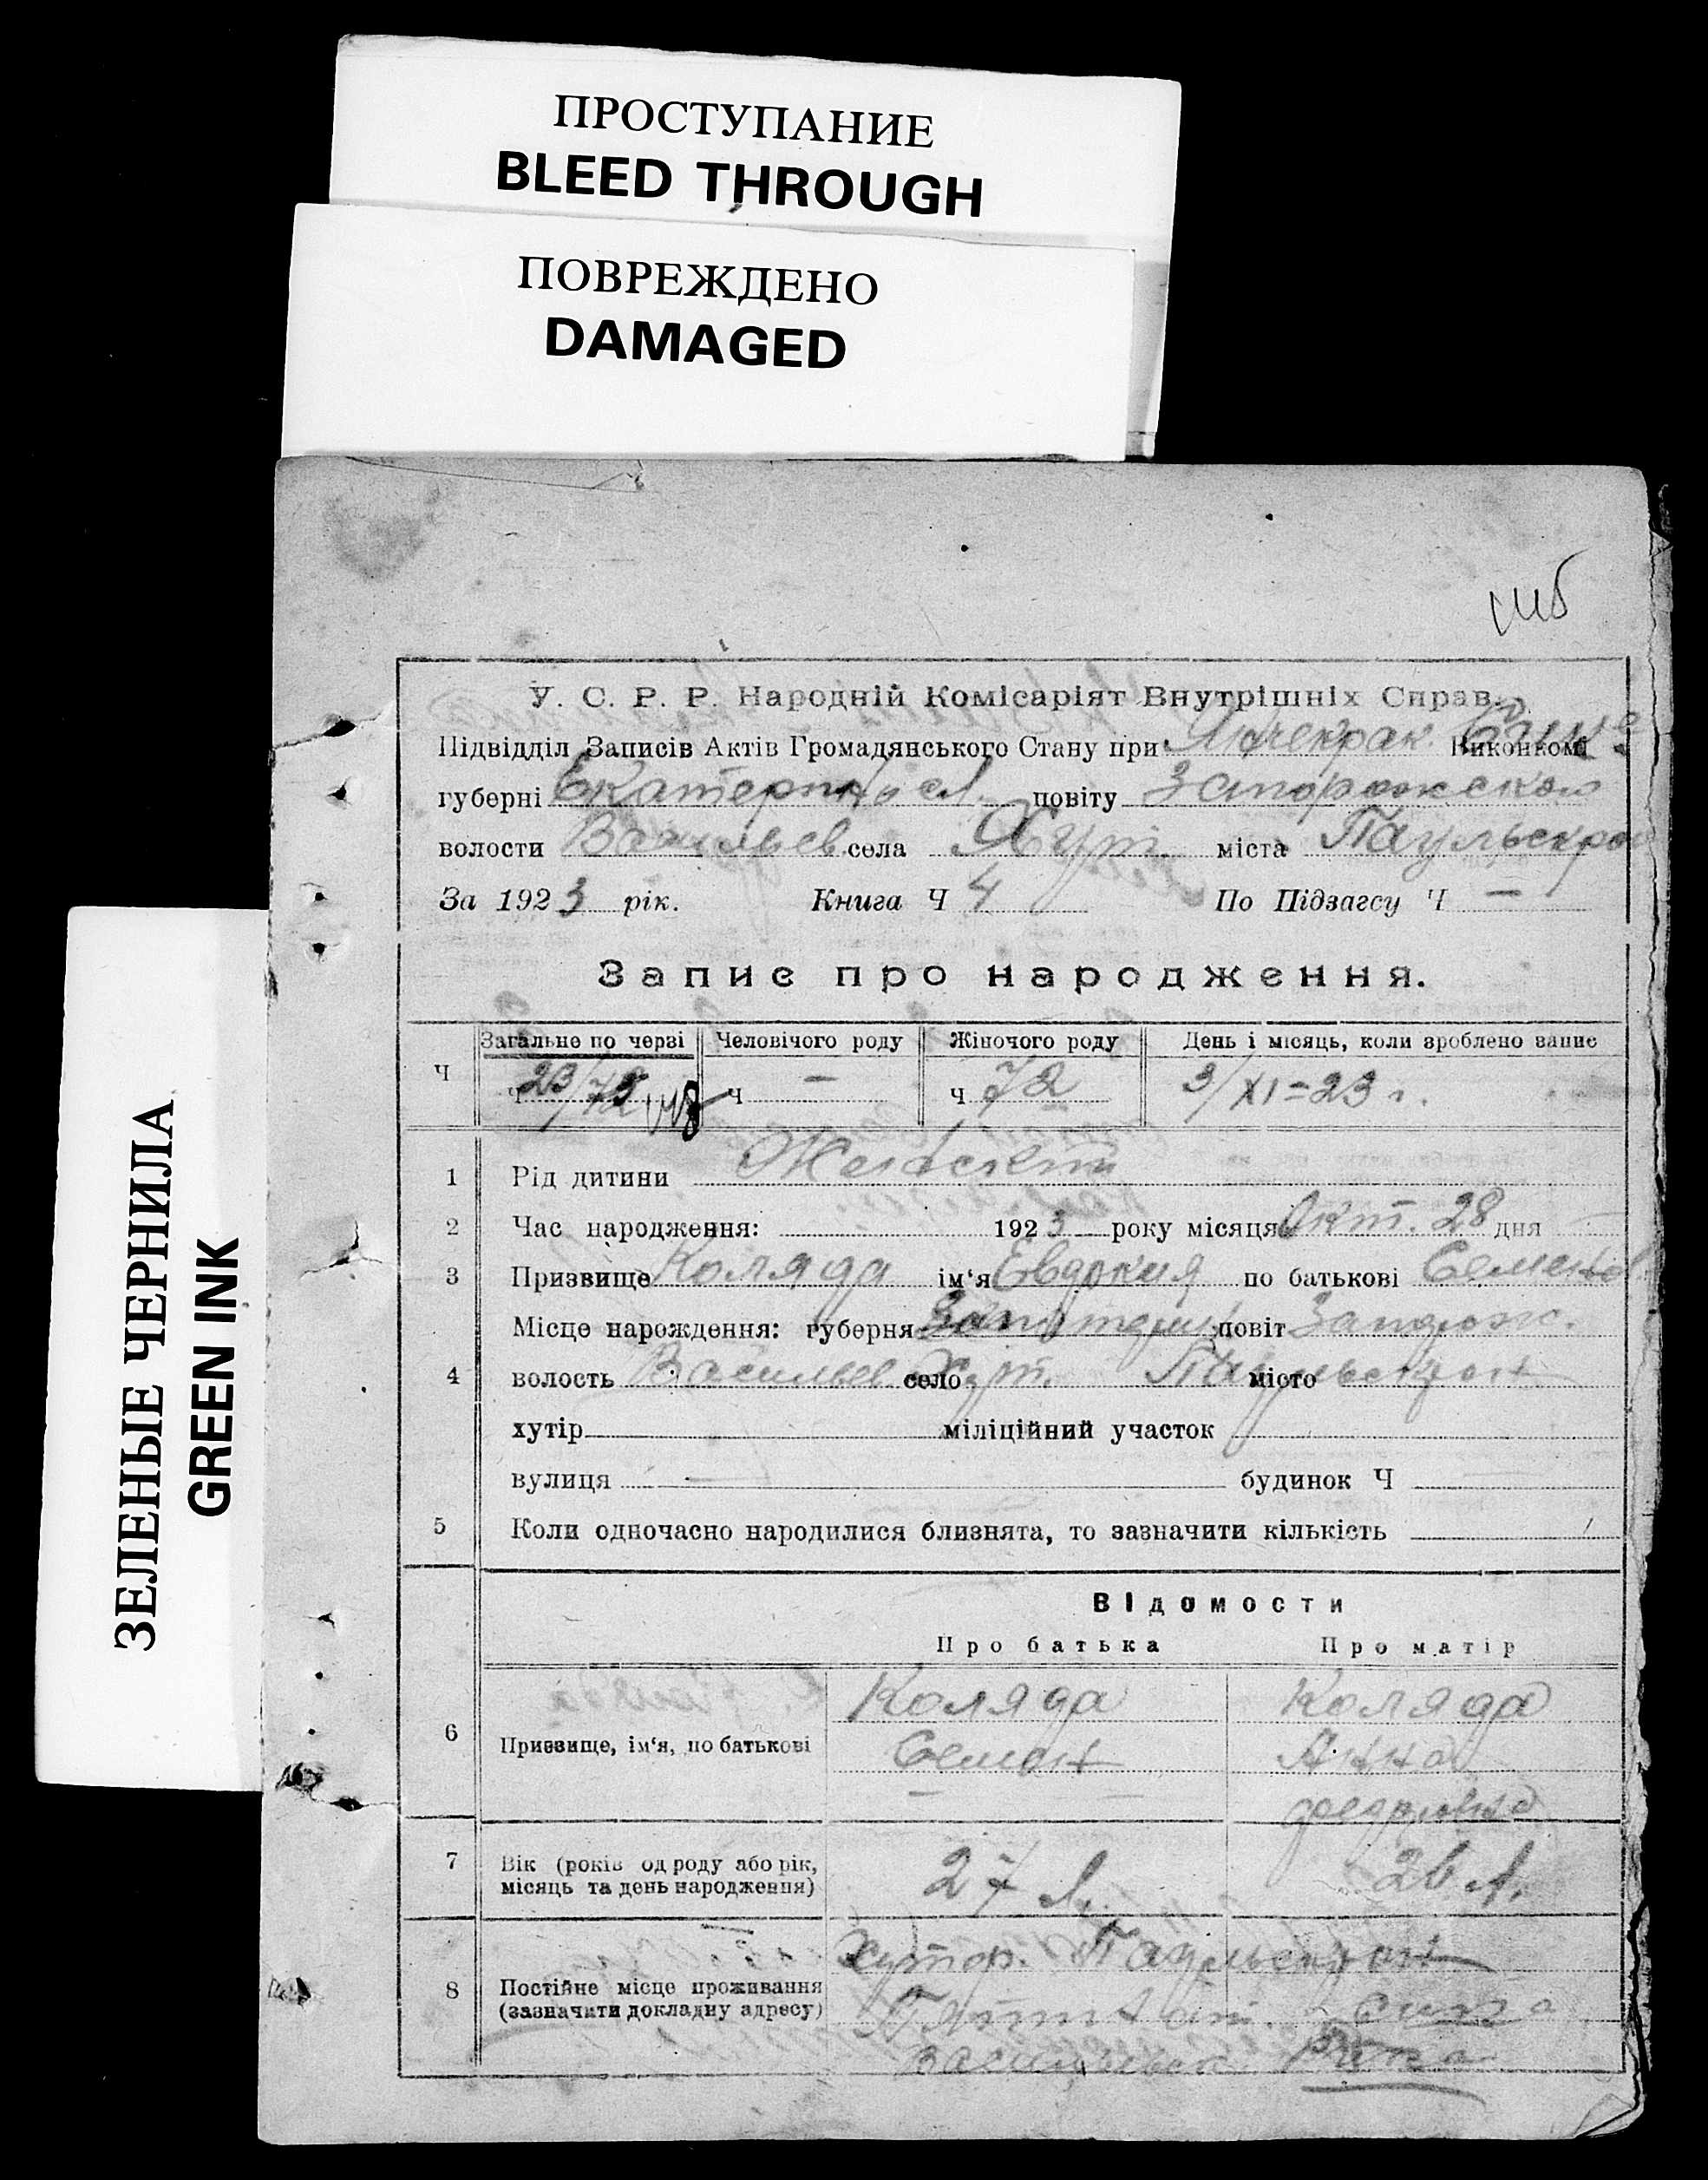 ПРОСТУПАНИЕ
BLEED THROUGH
ПОВРЕЖДЕНО
DAMAGED
ЗЕЛЕНЫЕ ЧЕРНИЛА
GREEN INK
У. С. Р. Р. Народній Комісаріят Внутрішніх Справ.
Підвідділ Записів Актів Громадянського Стану при Янчекрак. Виконкомі
губерні Екатериносл. повіту Запорожском
волости Васильев. села Хут. міста Паульскрон
За 1923 рік. Книга Ч 4 По Підзагсу Ч —
Запис про народження.
Ч Загально по черзі Человічого роду Жіночого роду День і місяць, коли зроблено запис
ч 23/72 ч — ч 72 3/XI=23 г.
1 Рід дитини Женский
2 Час народження: 1923 року місяця Окт. 28 дня
3 Призвище Коляда ім'я Евдокия по батькові Семенов
Місце народження: губерня повіт Запорож.
4 волость Васильев село Хут. місто Паульскрон
хутір міліційний участок
вулиця — будинок Ч
5 Коли одночасно народилися близнята, то зазначити кількість
Відомости
Про батька Про матір
6 Призвище, ім'я, по батькові Коляда Коляда
Семен Анна
— Федоровна
7 Вік (років од роду або рік, місяць та день народження) 27 л. 26 л.
8 Постійне місце проживання (зазначити докладну адресу) Хутор. Паульскрон
Васильевск. Р-на